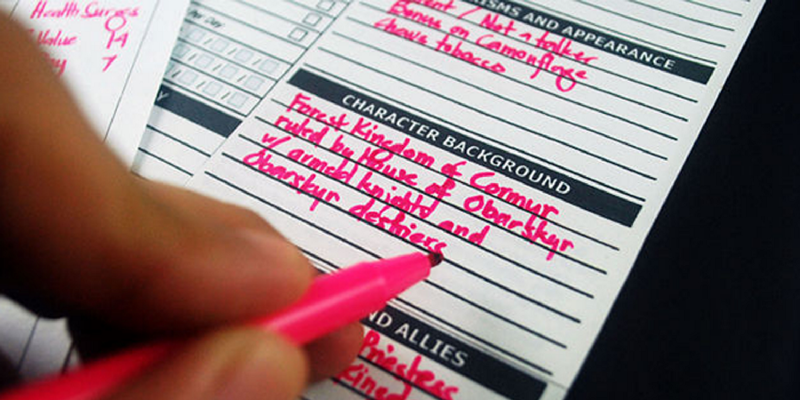 Health Surges
Value 14
7
Day
ISMS AND APPEARANCE
Not a talker
Bonus on Camouflage
chews tobacco
CHARACTER BACKGROUND
Forest Kingdom of Cormyr
ruled by House of Obarskyr
w/ armored knights and
Obarskyr destriers
ND ALLIES
Priestess